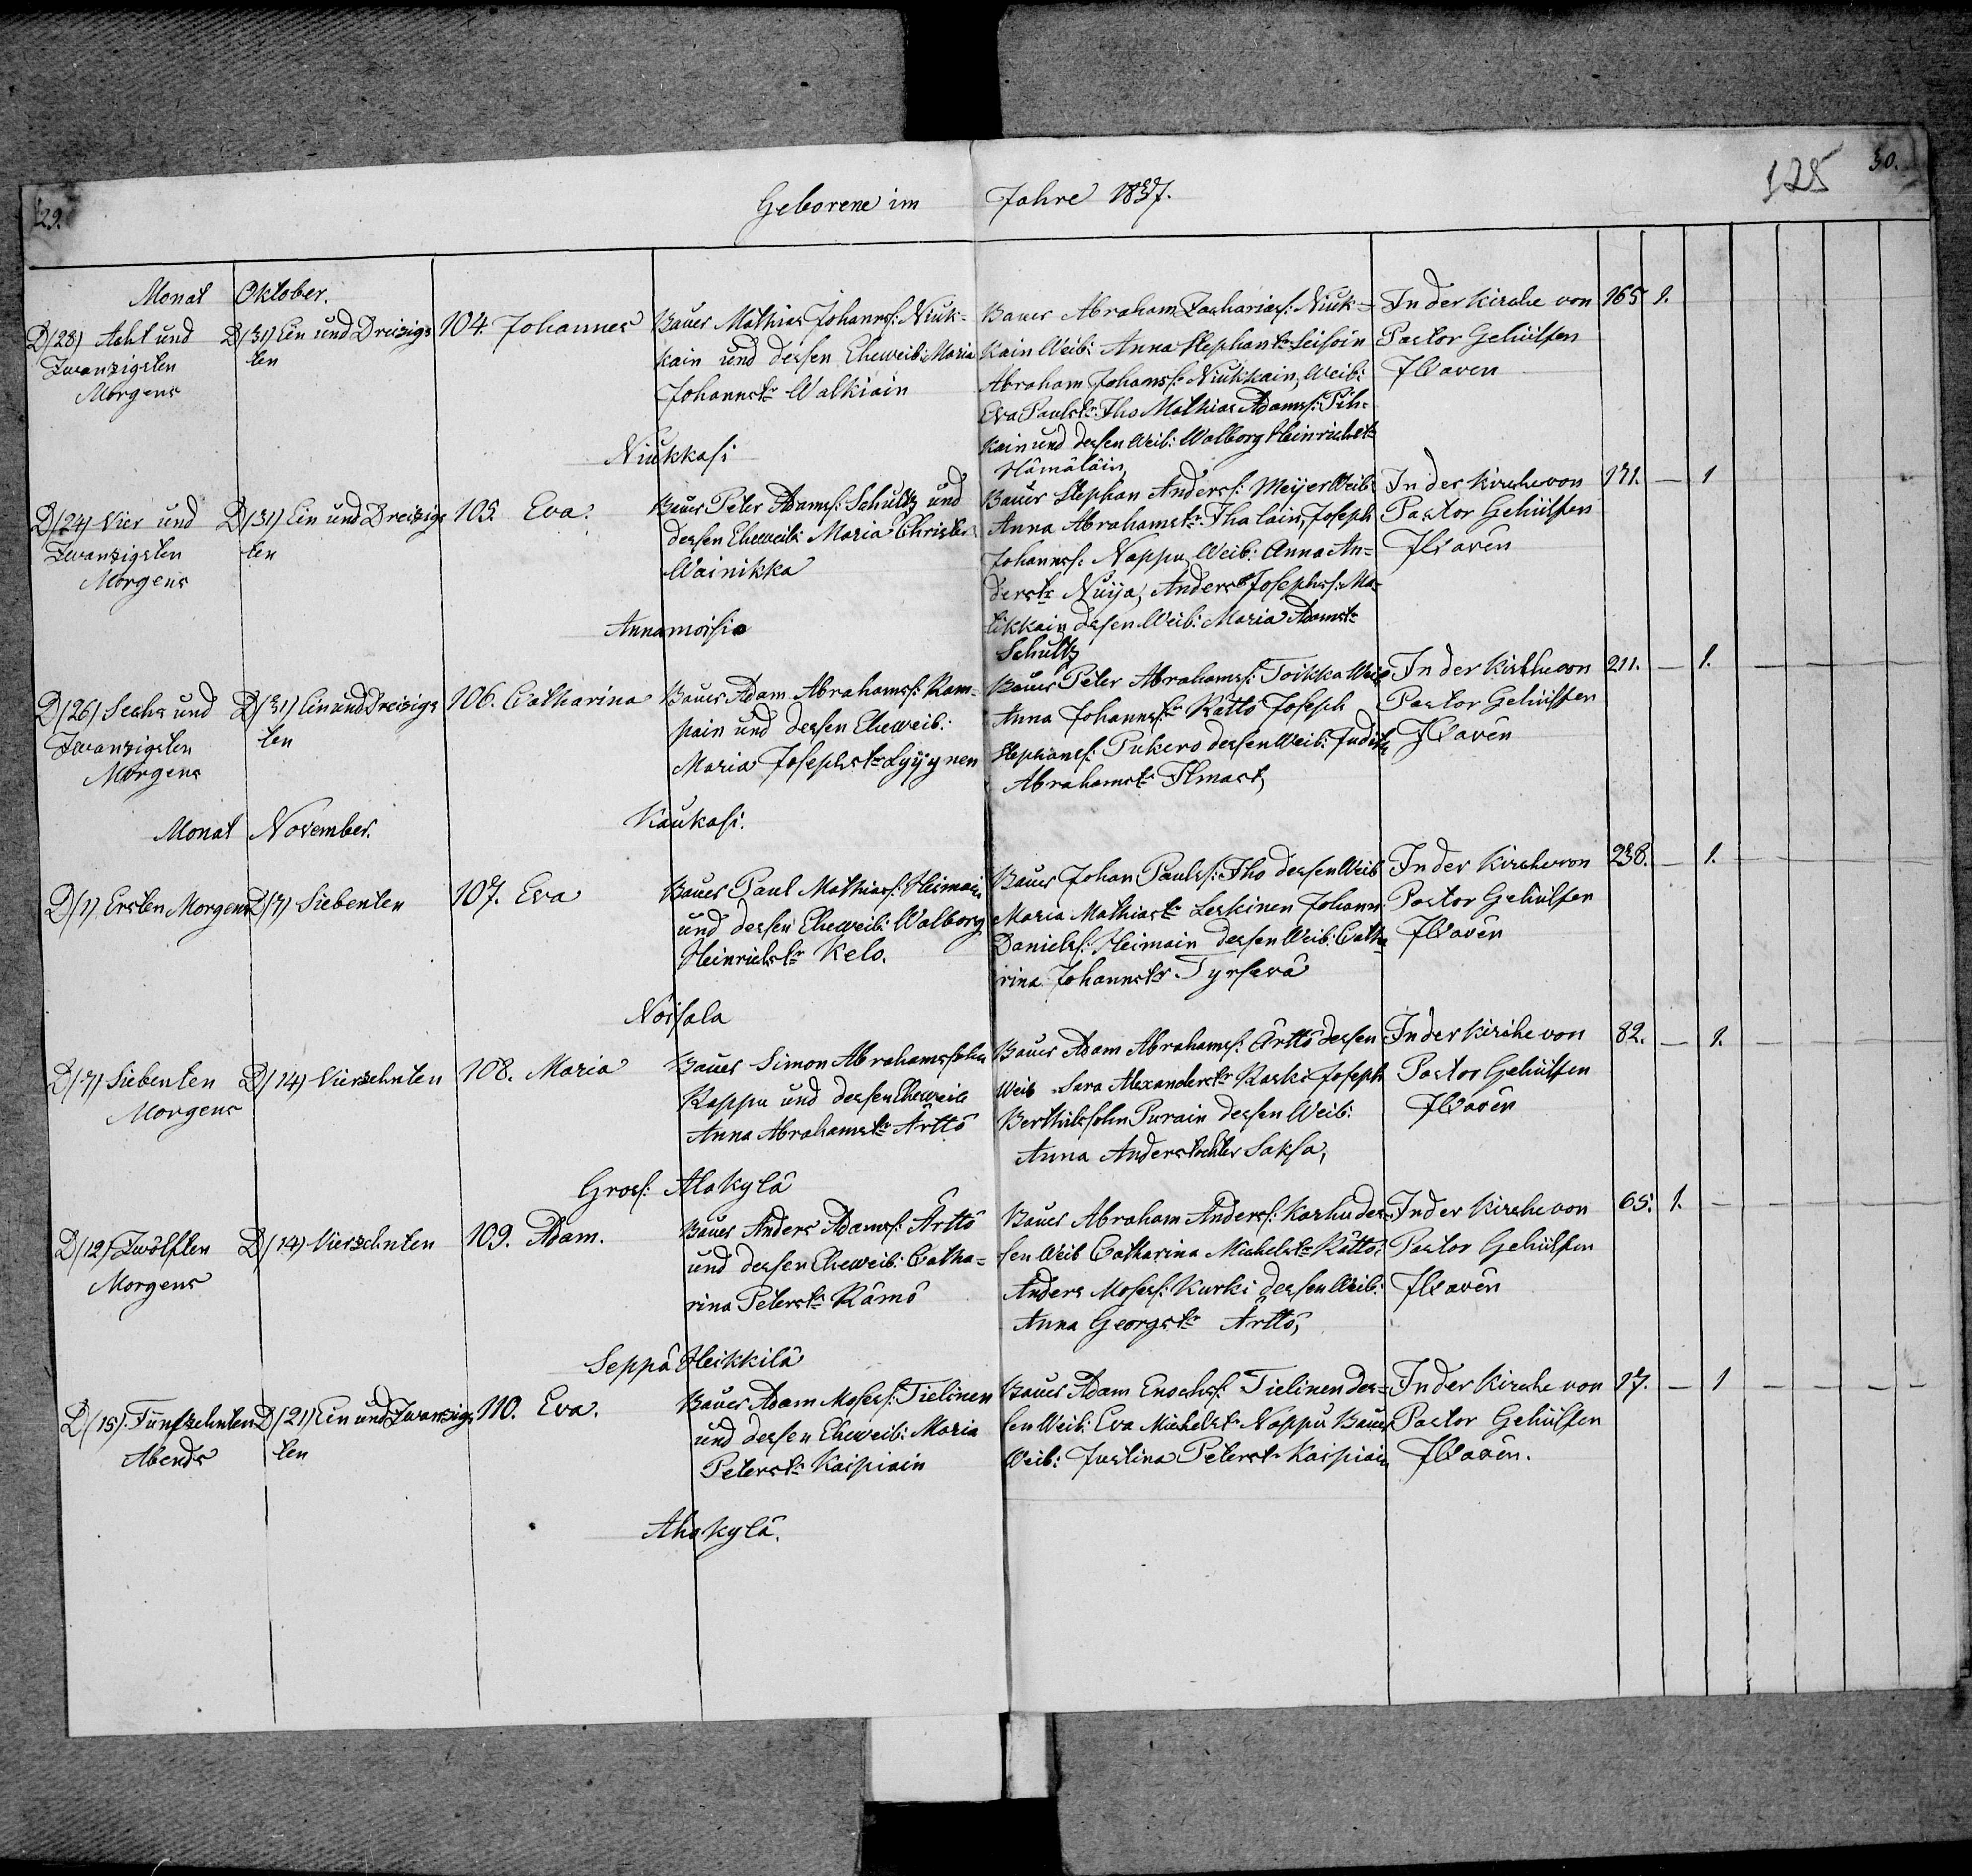 29.
Geborene im Jahre 1837.
128 30.
Monat Oktober.
D (28) Acht und D (31) Ein und Dreizigs 104. Johannes Bauer Mathias Johannss: Niuk- Bauer Abraham Zachariass: Niuk- In der Kirche von 165 1.
Zwanzigsten ten kain und dessen Eheweib: Maria kain Weib: Anna Stephanstr Leisoin Pastor Gehülfen
Morgens Johannstr Walkiain Abraham Johanss: Niukkain, Weib: JWaren
Eva Paulstr: Iho Mathias Adamss: Pih-
kain und dessen Weib: Walborg Heinrichstr
Niukkasi Hämäläin,
D (24) Vier und D (31) Ein und Dreizigs 105. Eva. Bauer Peter Adamss: Schultz und Bauer Stephan Anderss: Meyer Weib: In der Kirche von 171. — 1
Zwanzigsten ten dessen Eheweib: Maria Christer. Anna Abrahamstr Ihalain, Joseph Pastor Gehülfen
Morgens Wainikka Johannss: Nappu Weib: Anna An- JWarén
derstr Nuija, Anders Josephss: Ma-
Annamoisio likkain dessen Weib: Maria Adamstr
Schultz
D (26) Sechs und D (31) Ein und Dreizigs 106. Catharina Bauer Adam Abrahamss: Kam- Bauer Peter Abrahamss: Toikka Weib In der Kirche von 211. — 1.
Zwanzigsten ten pain und dessen Eheweib: Anna Johannstr Rättö Joseph Pastor Gehülfen
Morgens Maria Josephstr Lyyynen Stephanss: Pukero dessen Weib: Judith JWarén
Abrahamstr Ilmast,
Monat November. Kaukasi.
D (1) Ersten Morgens D (7) Siebenten 107. Eva Bauer Paul Mathiass: Heimain Bauer Johan Paulss: Iho dessen Weib In der Kirche von 238. — 1.
und dessen Eheweib: Walborg Maria Mathiastr Leskinen Johann Pastor Gehülfen
Heinrichstr Kelo. Danielss: Heimain dessen Weib: Catha- JWarén
rina Johannstr Tyrserä
Noisala
D (7) Siebenten D (14) Vierzehnten 108. Maria Bauer Simon Abrahamssohn Bauer Adam Abrahamss: Ärttö dessen In der Kirche von 82. — 1.
Morgens Rappu und dessen Eheweib Weib Sara Alexanderstr Raski Joseph Pastor Gehülfen
Anna Abrahamstr Ärttö Berthilssohn Purain dessen Weib: JWarén
Anna Anderstochter Saksa,
Gross: Alakylä
D (12) Zwölften D (14) Vierzehnten 109. Adam. Bauer Anders Adamss: Ärttö Bauer Abraham Anderss: Karhu des- In der Kirche von 65. 1.
Morgens und dessen Eheweib: Catha- sen Weib Catharina Michelstr Rättö: Pastor Gehülfen
rina Peterstr Rämö Anders Mosess: Kurki dessen Weib: JWarén
Anna Georgstr Ärttö,
Seppä Heikkilä
D (15). Fünfzehnten D (21) Ein und Zwanzigs 110. Eva. Bauer Adam Mosess: Tielinen Bauer Adam Enochss: Tielinen des- In der Kirche von 17. — 1
Abends ten und dessen Eheweib: Maria sen Weib: Eva Michelstr Nappu Bauer Pastor Gehülfen
Peterstr Kaipiain Weib: Justina Peterstr Kaipiain JWarén.
Ahakylä.